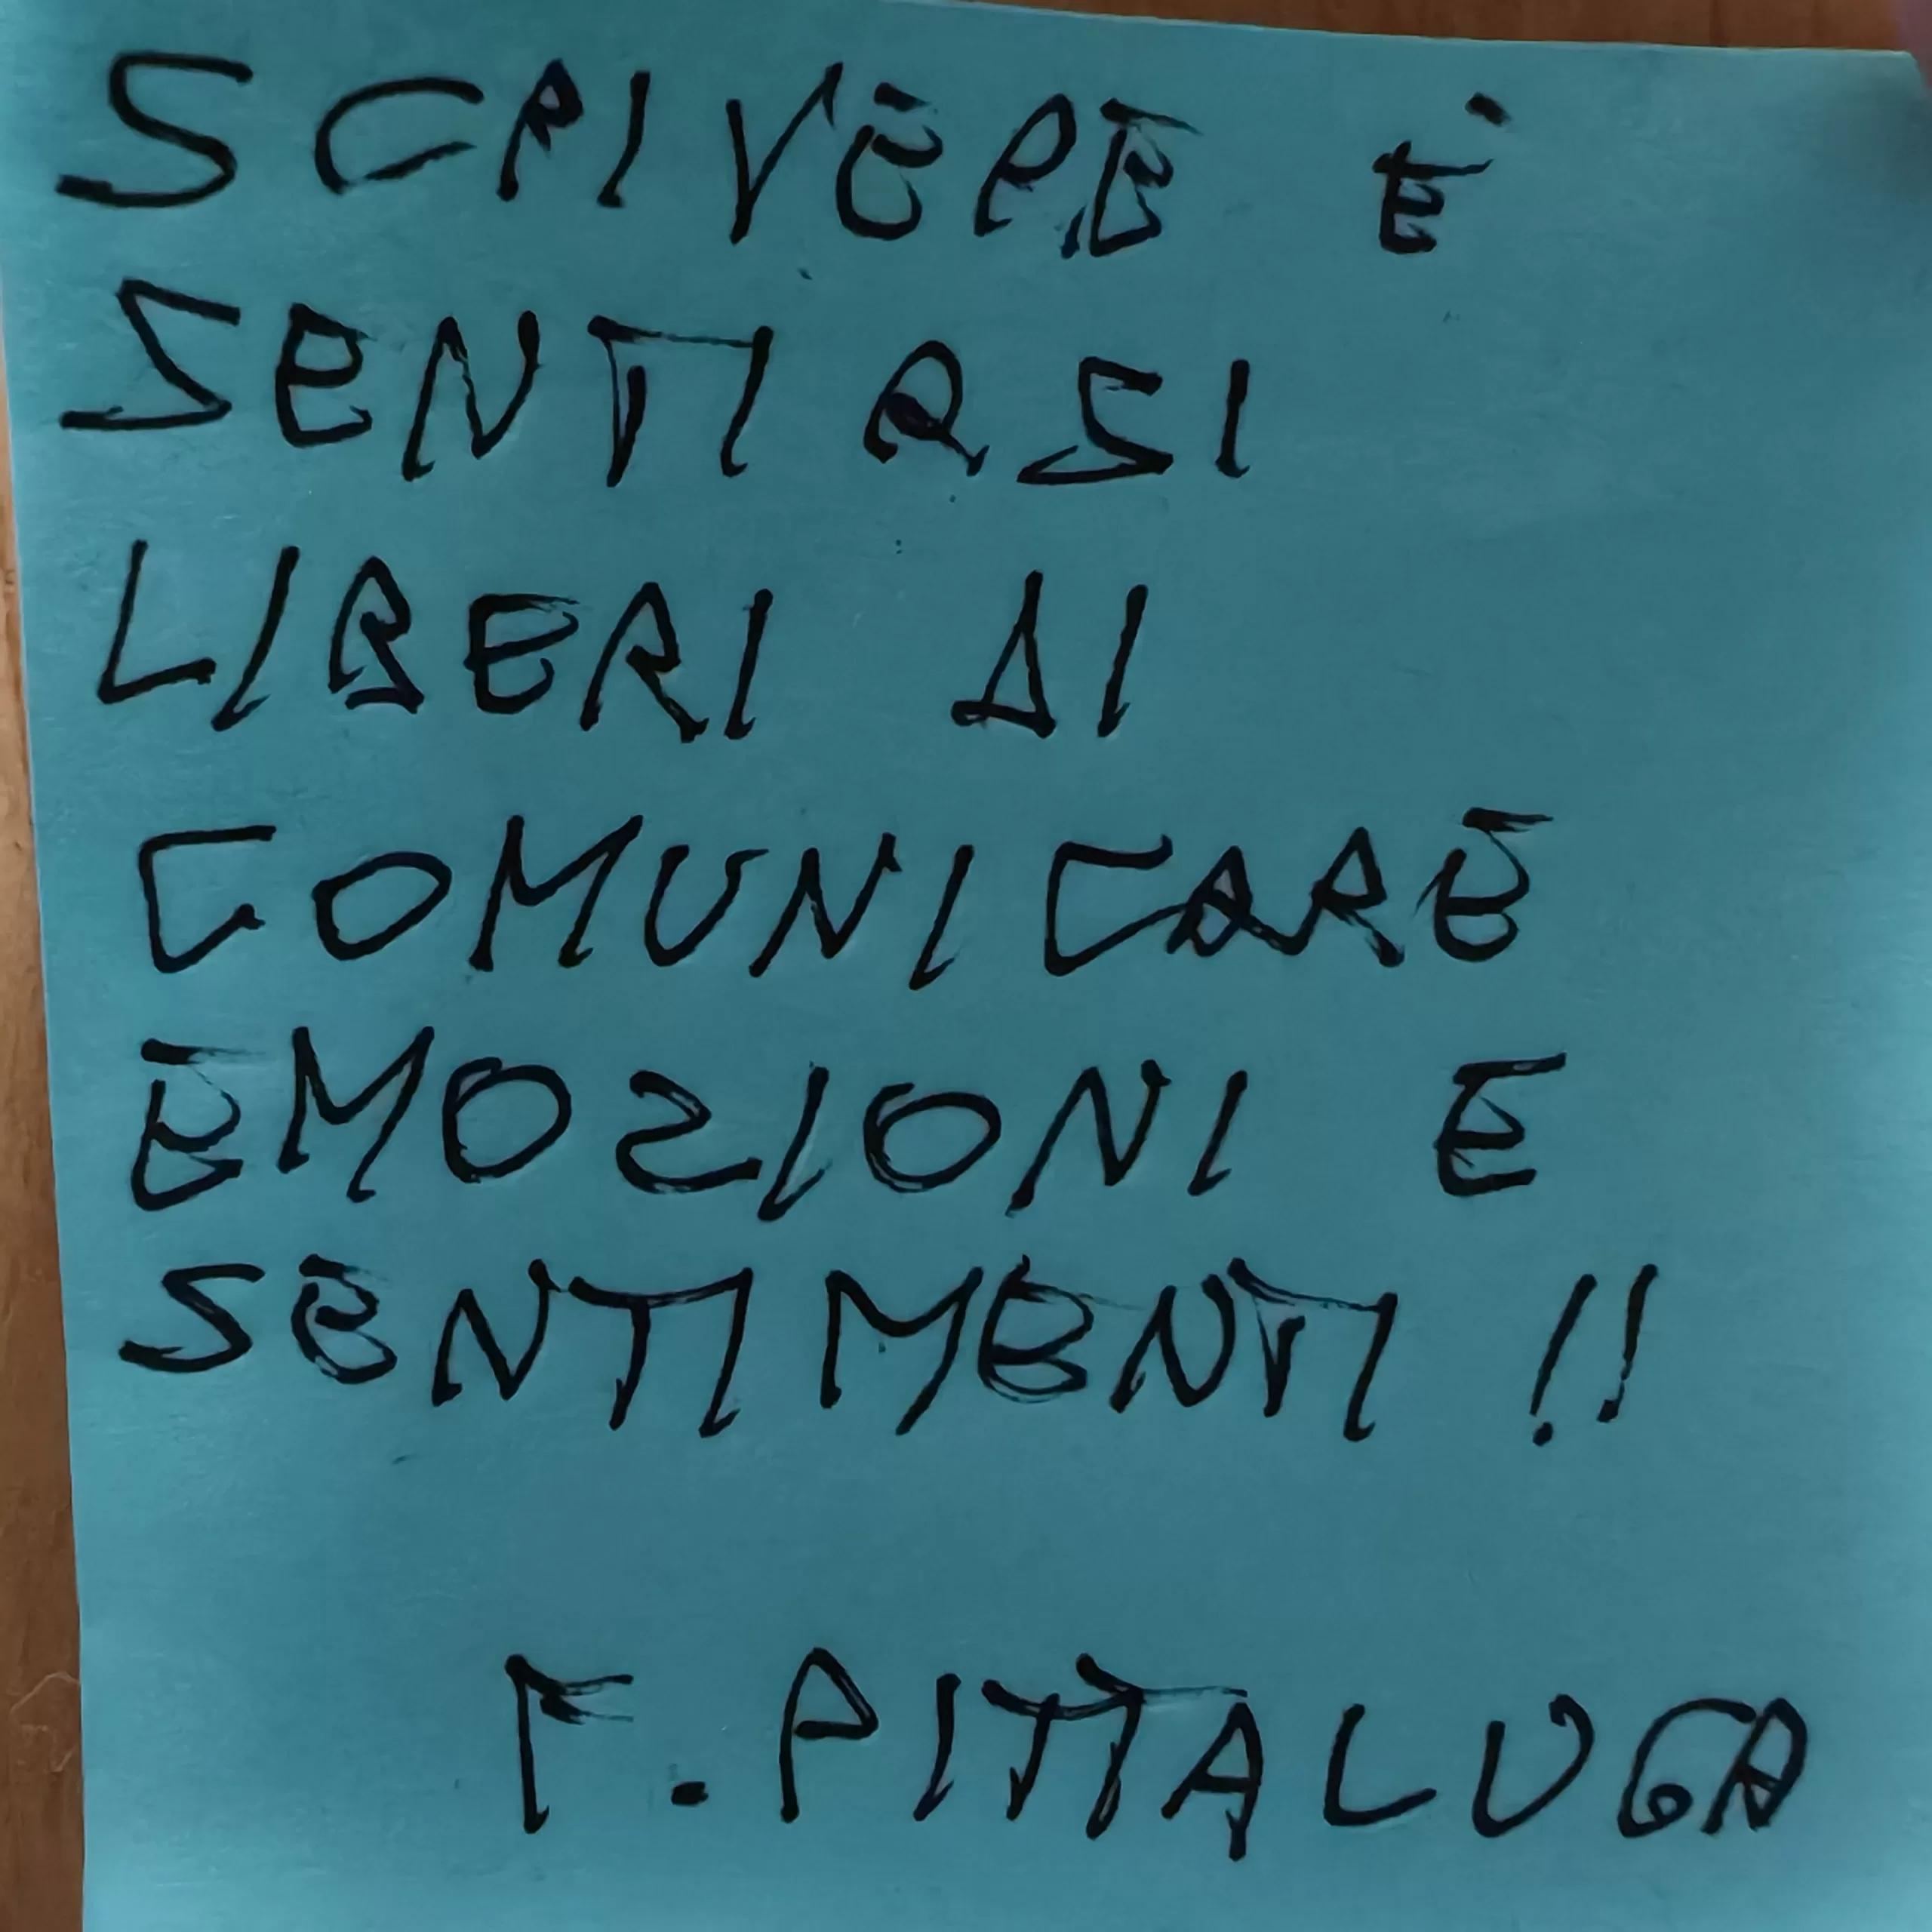 SCRIVERE È
SENTIRSI
LIBERI DI
COMUNICARE
EMOZIONI E
SENTIMENTI !!
F. PITTALUGA